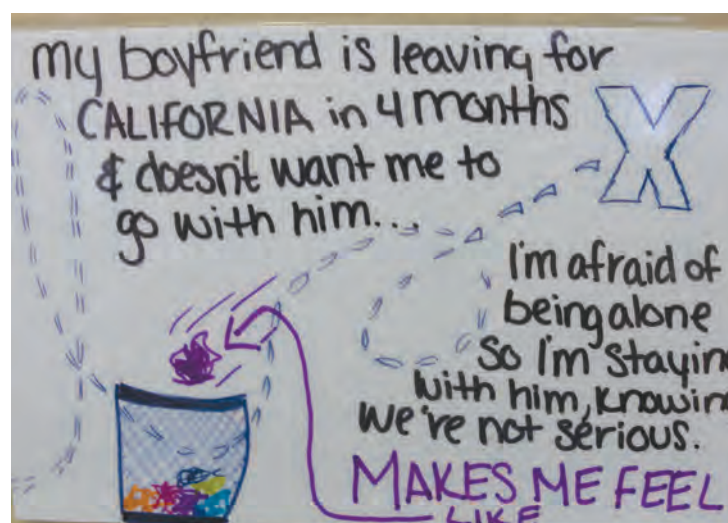 my boyfriend is leaving for
CALIFORNIA in 4 months
& doesn't want me to
go with him...
X
I'm afraid of
being alone
So I'm Stayin
with him, knowin
we're not serious.
MAKES ME FEEL
LIKE